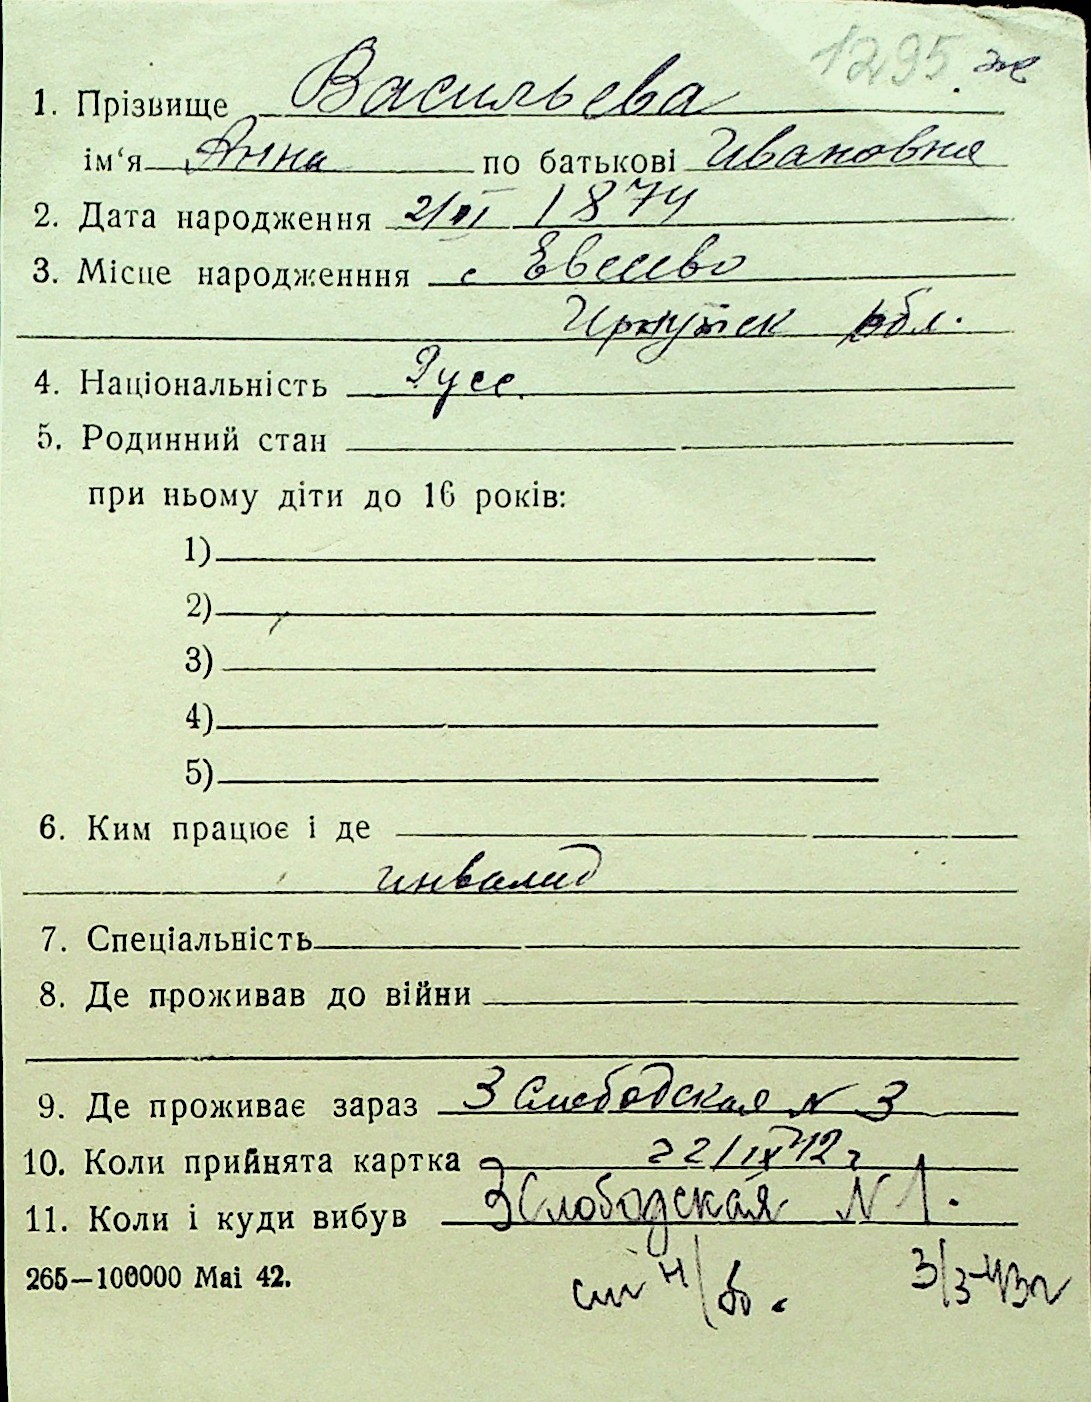 1295
1. Прізвище Васильева
ім‘я Анна по батькові Ивановна
2. Дата народження 2/VI 1874
3. Місце народженння с Евсеево
Иркутск обл.
4. Національність Русс.
5. Родинний стан
при ньому діти до 16 років:
1)
2)
3)
4)
5)
6. Ким працює і де
инвалид
7. Спеціальність
8. Де проживав до війни
9. Де проживає зараз 3 Слободская N 3
10. Коли прийнята картка 22/IX 42 г
11. Коли і куди вибув 3 Слободская N 1.
3/3-43г
265—100000 Mai 42.